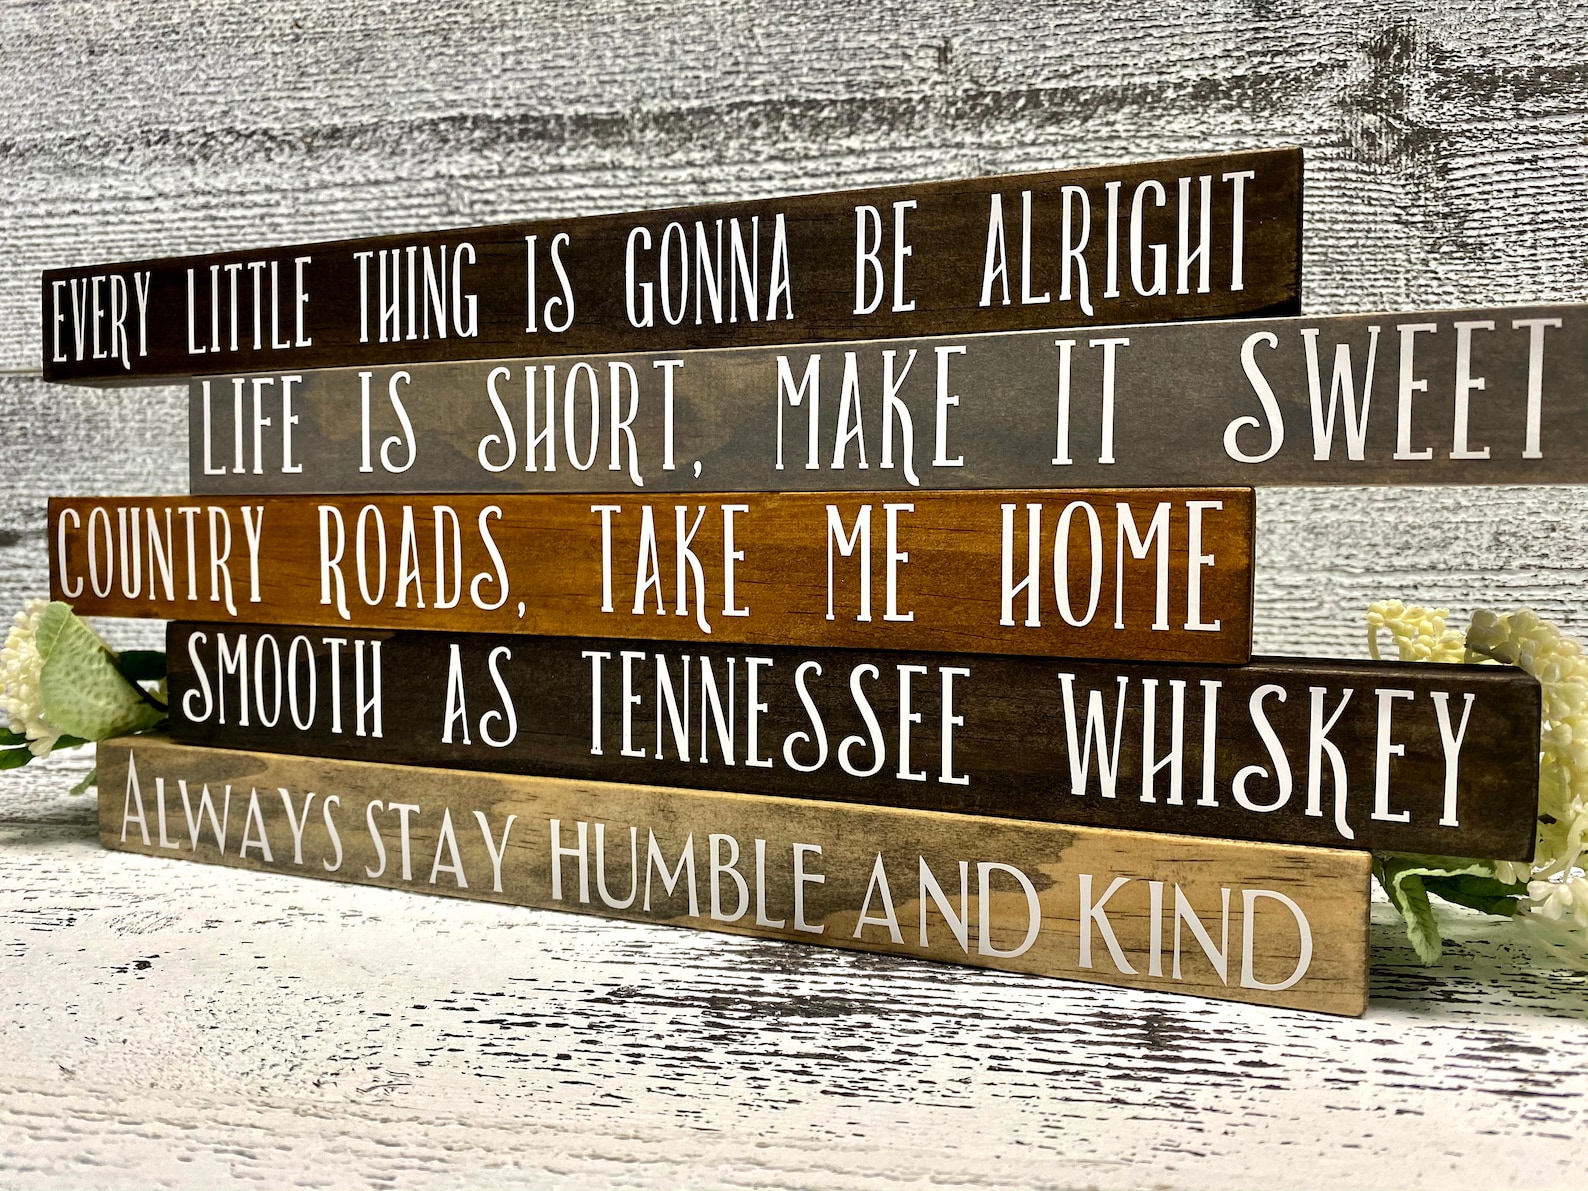 EVERY LITTLE THING IS GONNA BE ALRIGHT
LIFE IS SHORT, MAKE IT SWEET
COUNTRY ROADS, TAKE ME HOME
SMOOTH AS TENNESSEE WHISKEY
ALWAYS STAY HUMBLE AND KIND